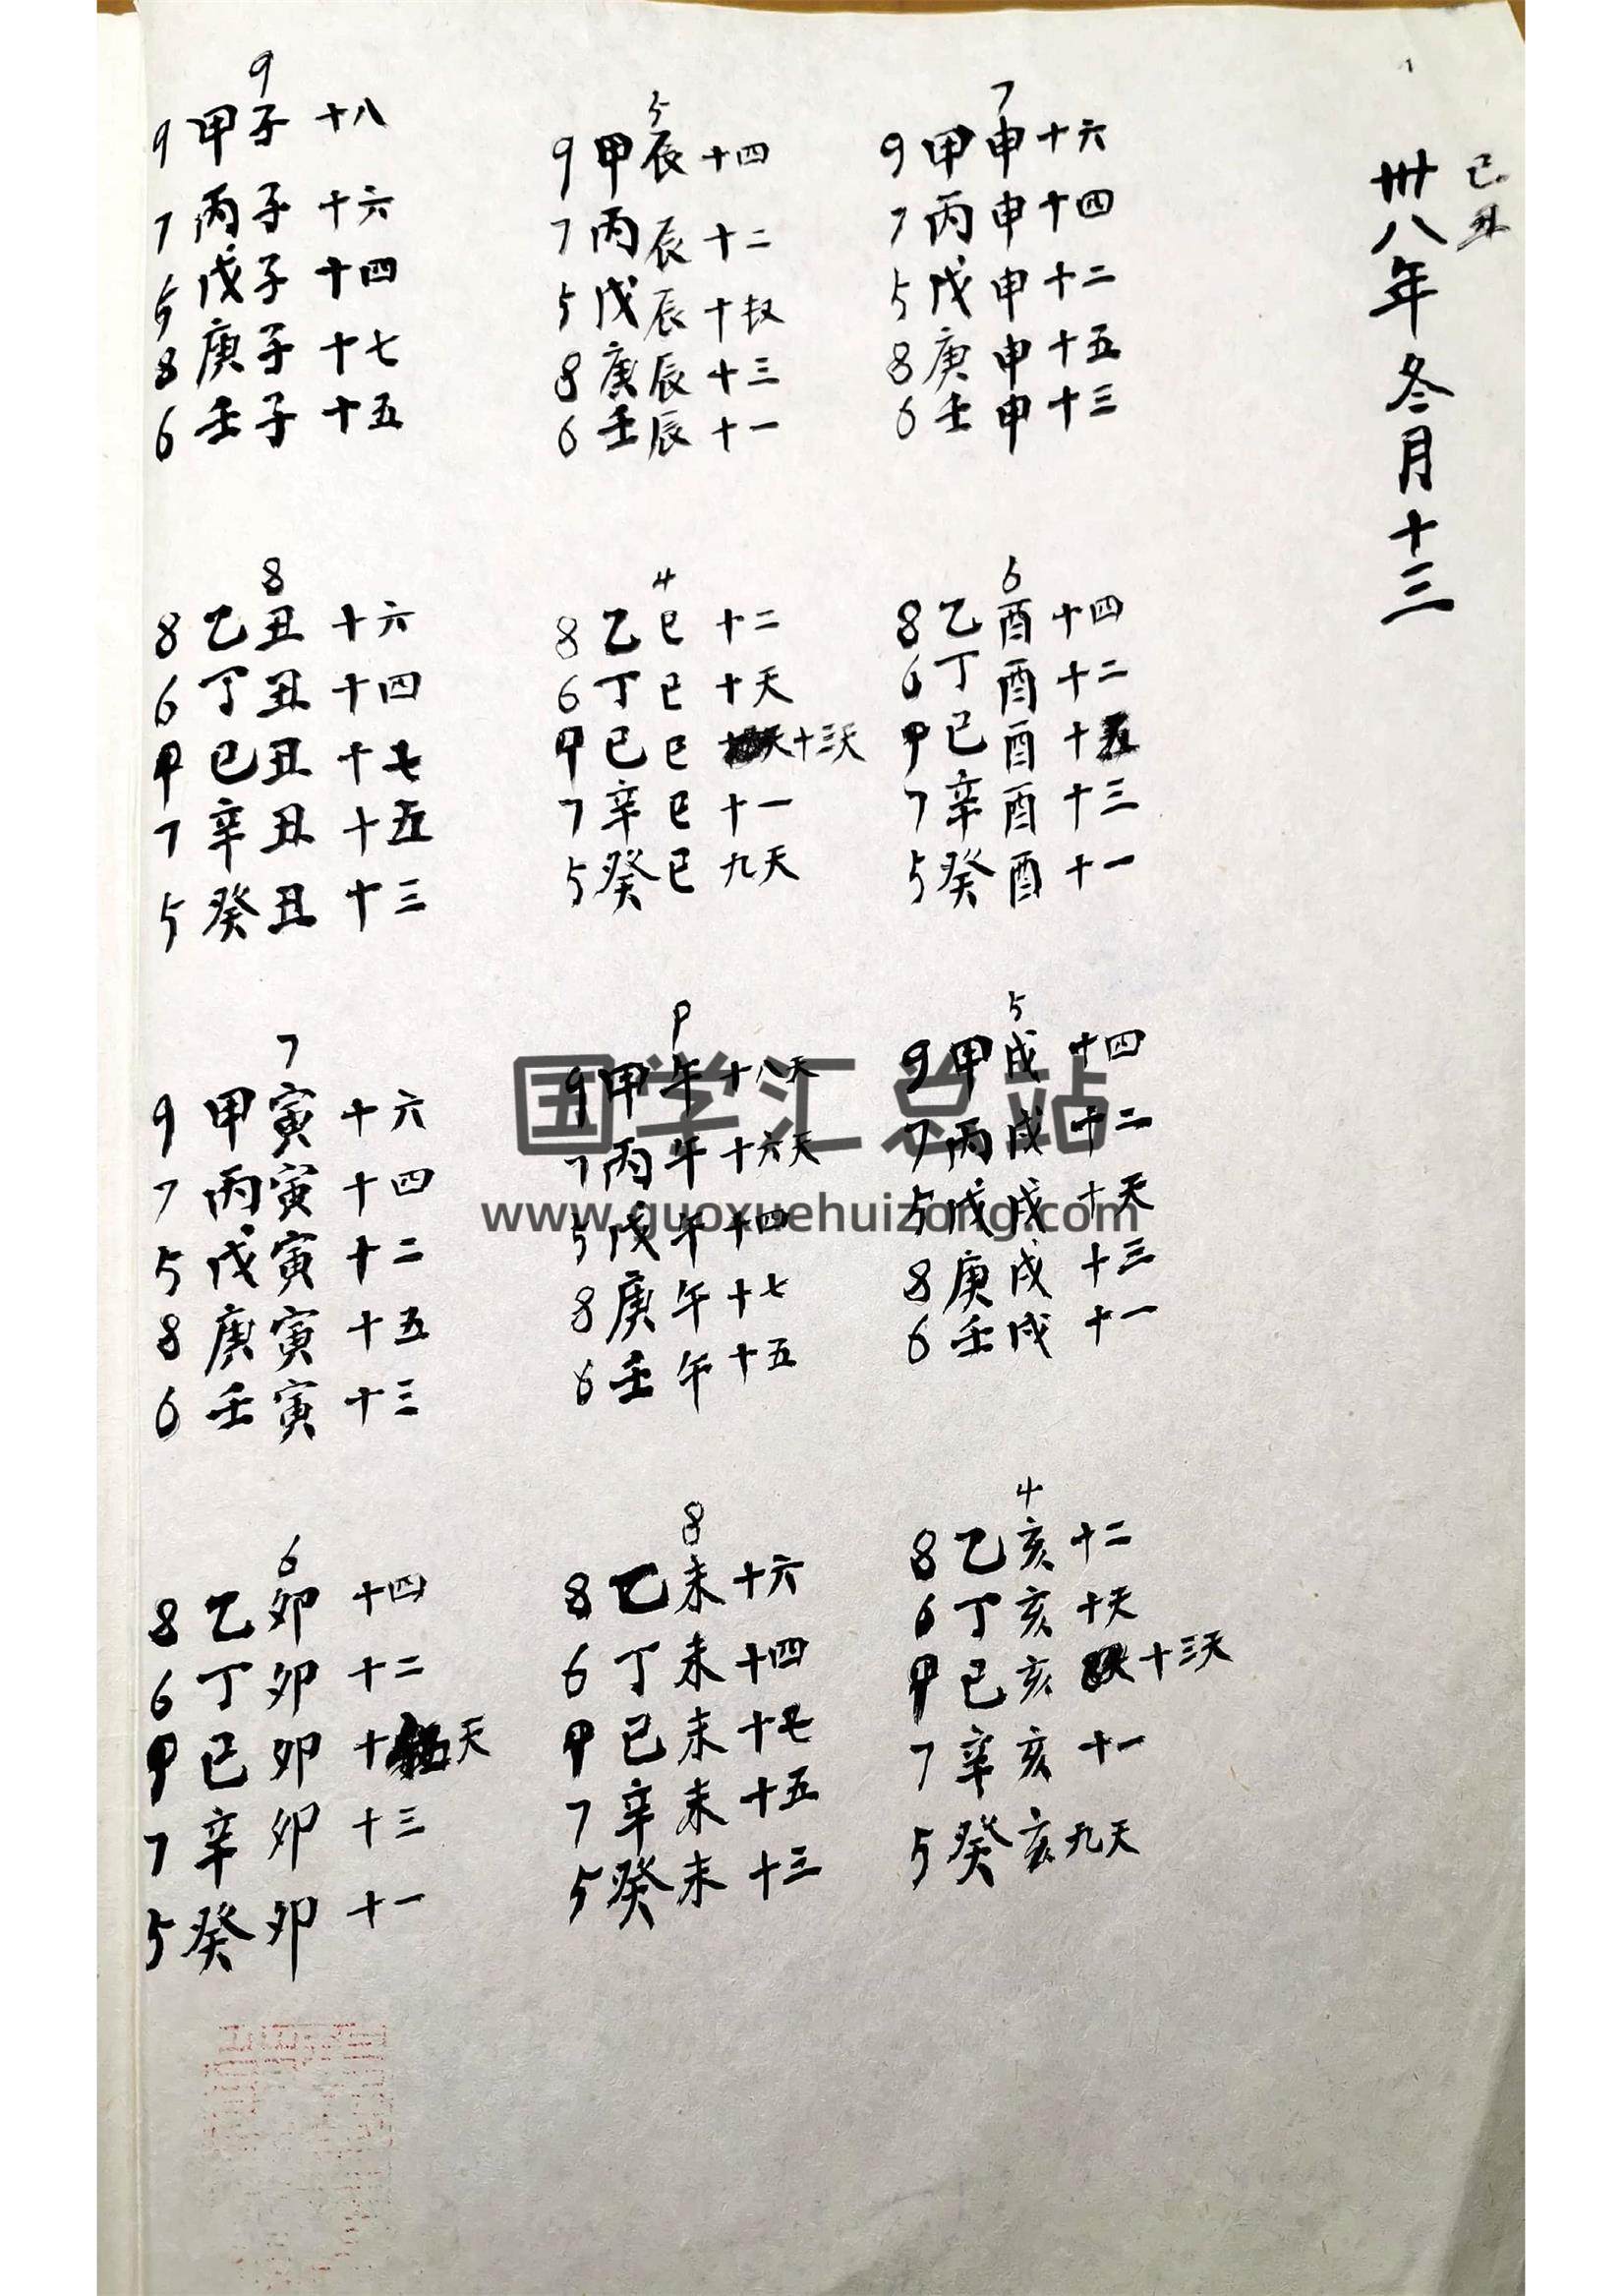 己丑
卅八年冬月十三
9
9 甲子 十八
7 丙子 十六
5 戊子 十四
8 庚子 十七
6 壬子 十五
8
8 乙丑 十六
6 丁丑 十四
甲 己丑 十七
7 辛丑 十五
5 癸丑 十三
7
9 甲寅 十六
7 丙寅 十四
5 戊寅 十二
8 庚寅 十五
6 壬寅 十三
6
8 乙卯 十四
6 丁卯 十二
甲 己卯 十天
7 辛卯 十三
5 癸卯 十一
5
9 甲辰 十四
7 丙辰 十二
5 戊辰 十
8 庚辰 十三
6 壬辰 十一
4
8 乙巳 十二
6 丁巳 十天
甲 己巳 十三天
7 辛巳 十一
5 癸巳 九天
9 甲午 十八天
7 丙午 十六天
5 戊午 十四
8 庚午 十七
6 壬午 十五
8
8 乙未 十六
6 丁未 十四
甲 己未 十七
7 辛未 十五
5 癸未 十三
7
9 甲申 十六
7 丙申 十四
5 戊申 十二
8 庚申 十五
6 壬申 十三
6
8 乙酉 十四
6 丁酉 十二
甲 己酉 十五
7 辛酉 十三
5 癸酉 十一
5
9 甲戌 十四
7 丙戌 十二
5 戊戌 十天
8 庚戌 十三
6 壬戌 十一
4
8 乙亥 十二
6 丁亥 十天
甲 己亥 十三天
7 辛亥 十一
5 癸亥 九天
国学汇总站
www.guoxuehuizong.com